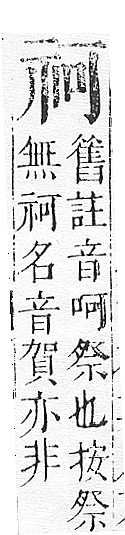 祠
舊註音呵祭也按祭
無祠名音賀亦非